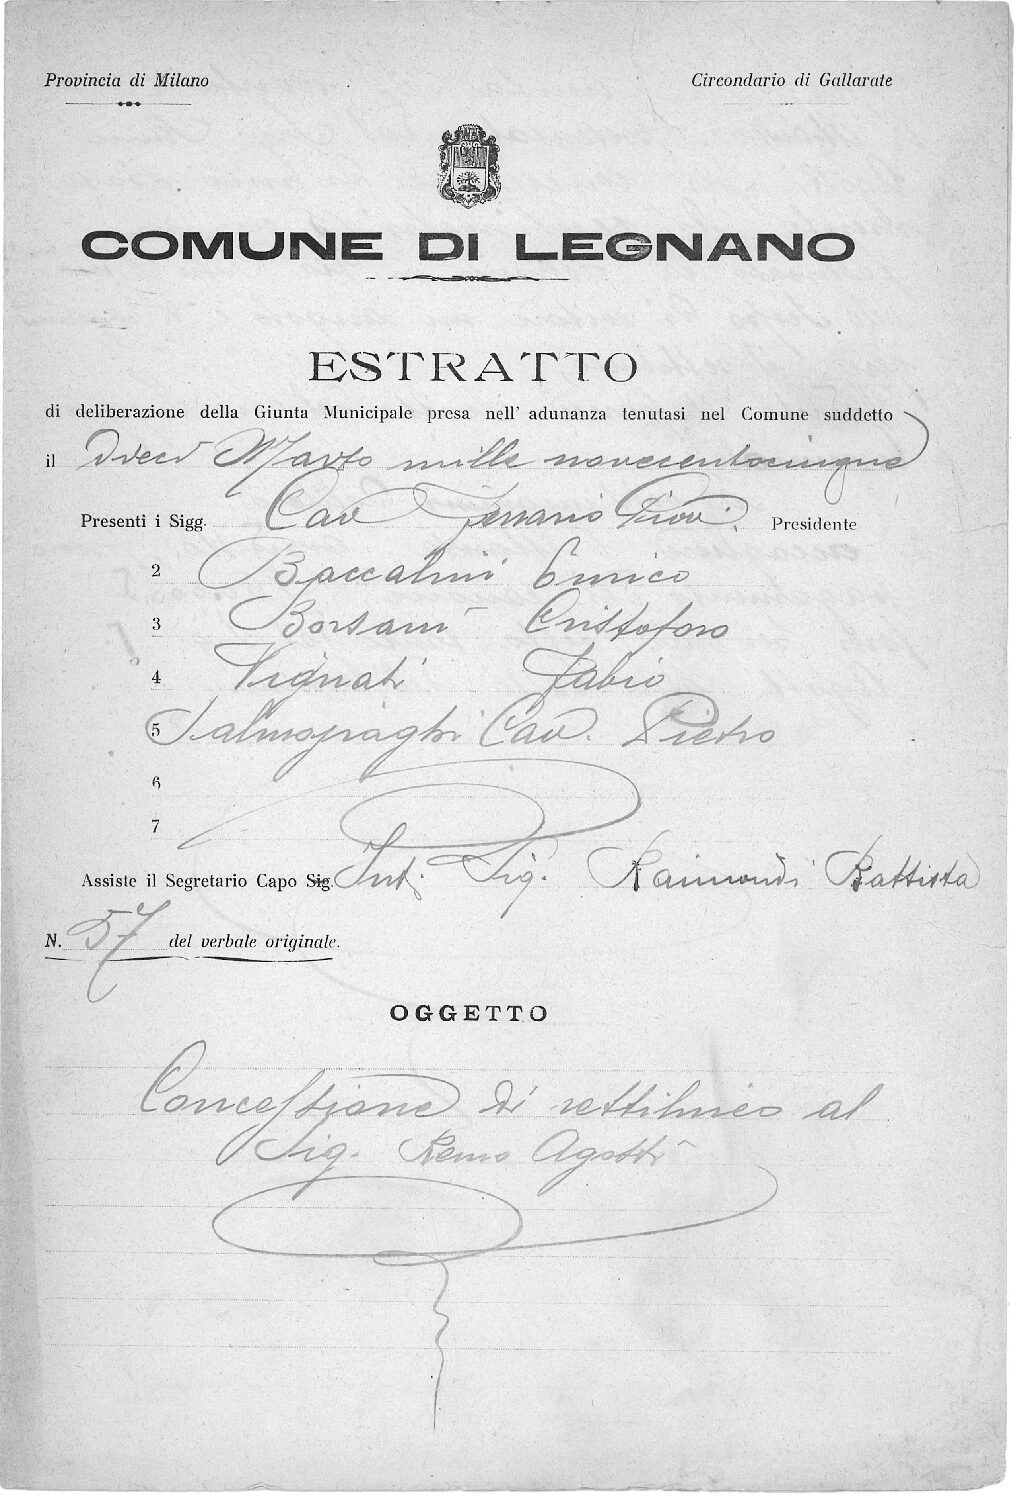 Provincia di Milano
Circondario di Gallarate
COMUNE DI LEGNANO
ESTRATTO
di deliberazione della Giunta Municipale presa nell' adunanza tenutasi nel Comune suddetto
il Dieci Marzo mille novecentocinque
Presenti i Sigg. Cav Ferrario Giov: Presidente
2 Baccalini Enrico
3 Borsani Cristoforo
4 Vignati Fabio
5 Salmojraghi Cav. Pietro
6
7
Assiste il Segretario Capo Sig. Int. Sig. Raimondi Battista
N. 57 del verbale originale.
OGGETTO
Concessione di rettilineo al
Sig. Remo Agosti